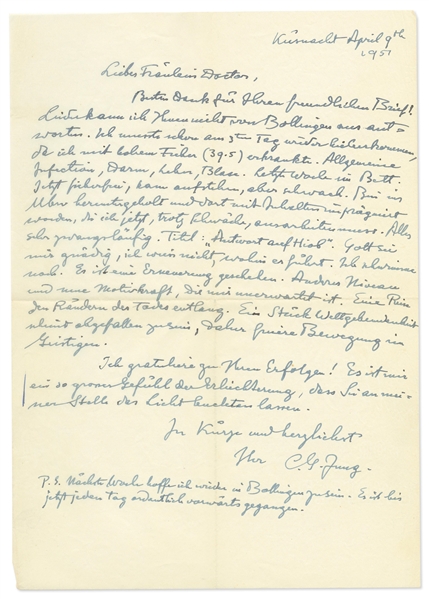 Küsnacht April 9th
1951
Liebes Fräulein Doctor,
Besten Dank für Ihren freundlichen Brief!
Leider kann ich Ihnen nicht von Bollingen aus ant=
worten. Ich musste schon am 3ten Tag wieder hieher kommen,
da ich mit hohem Fieber (39.5) erkrankte. Allgemeine
Infection, Darm, Leber, Blase. Letzte Woche im Bett.
Jetzt fieberfrei, kann aufstehen, aber schwach. Bin in's
Leben heruntergeholt und dort mit Inhalten imprägniert
worden, die ich jetzt, trotz Schwäche, ausarbeiten muss. Alles
sehr zwangsläufig. Titel: "Antwort auf Hiob". Gott sei
mir gnädig, ich weiss nicht wohin er führt. Ich schwimme
noch. Es ist eine Erneuerung geschehen. Anderes Niveau
und neue Motorkraft, die mir unerwartet ist. Eine Reise
den Rändern des Todes entlang. Ein Stück Weltgebundenheit
scheint abgefallen zu sein, daher freiere Bewegung im
Geistigen.
Ich gratuliere zu Ihren Erfolgen! Es ist mir
ein so grosses Gefühl der Erleichterung, dass Sie an mei=
ner Stelle das Licht leuchten lassen.
In Kürze und herzlichst
Ihr C. G. Jung.
P.S. Nächste Woche hoffe ich wieder in Bollingen zu sein. Es ist bis
jetzt jeden Tag ordentlich vorwärts gegangen.